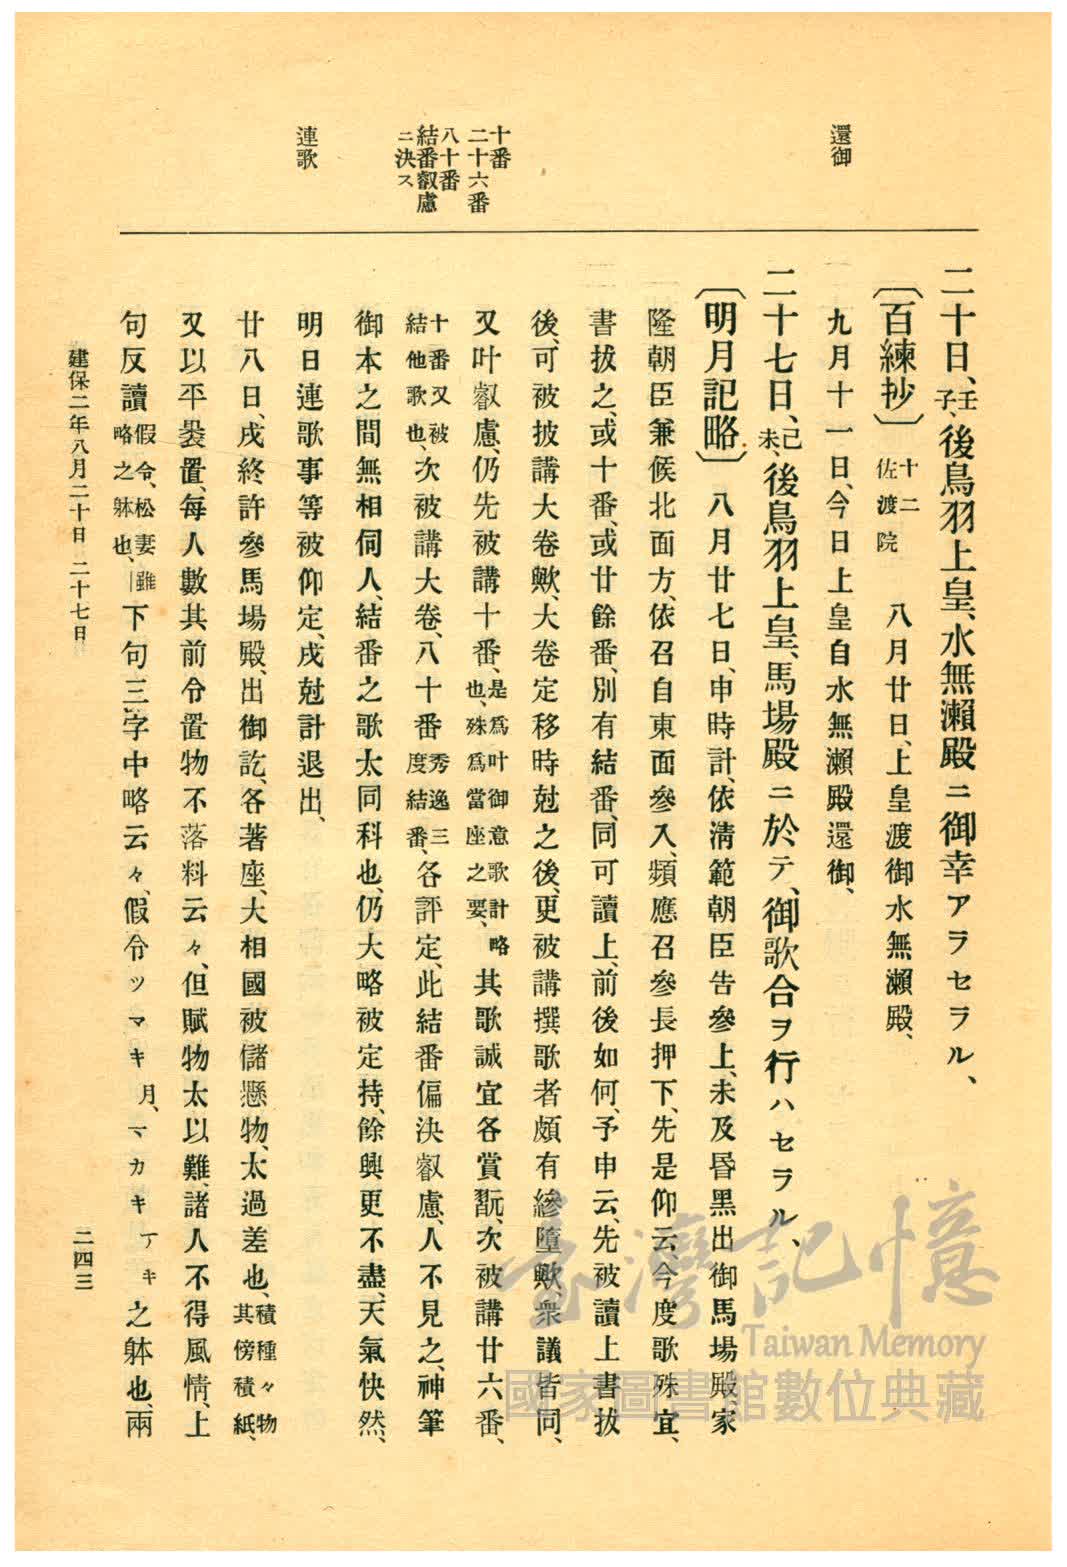 還御
十番
二十六番
八十番
結番叡慮
ニ決ス
連歌
二十日、壬子、後鳥羽上皇、水無瀨殿ニ御幸アラセラル、
〔百練抄〕十二佐渡院　八月廿日、上皇渡御水無瀨殿、
九月十一日、今日上皇自水無瀨殿還御、
二十七日、己未、後鳥羽上皇、馬場殿ニ於テ、御歌合ヲ行ハセラル、
〔明月記略〕八月廿七日、申時計、依淸範朝臣告參上、未及昏黑出御馬場殿家
隆朝臣兼候北面方、依召自東面參入、頻應召參長押下、先是仰云、今度歌殊宜、
書拔之、或十番、或廿餘番、別有結番、同可讀上、前後如何、予申云、先被讀上書拔
後、可被披講大卷歟、大卷定移時尅之後、更被講撰歌者頗有縿墮歟、衆議皆同、
又叶叡慮、仍先被講十番、是爲叶御意歌計略也、殊爲當座之要、其歌誠宜各賞翫、次被講廿六番、
十番又被結他歌也、次被講大卷、八十番秀逸三度結番、各評定、此結番偏決叡慮、人不見之、神筆
御本之間無相伺人、結番之歌太同科也、仍大略被定持、餘興更不盡、天氣快然、
明日連歌事等被仰定、戌尅計退出、
廿八日、戌終許參馬場殿、出御訖、各著座、大相國被儲懸物、太過差也、積種々物其傍積紙、
又以平裝置、每人數其前令置物不落料云々、但賦物太以難、諸人不得風情、上
句反讀假令、松妻雖略之躰也、下句三字中略云々、假令ツマキ月、マカキ丁キ之躰也、兩
建保二年八月二十日 二十七日
二四三
臺灣記憶
Taiwan Memory
國家圖書館數位典藏